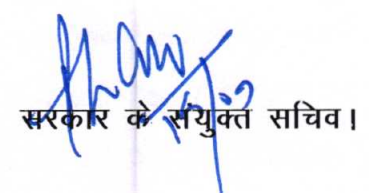 सरकार के संयुक्त सचिव।